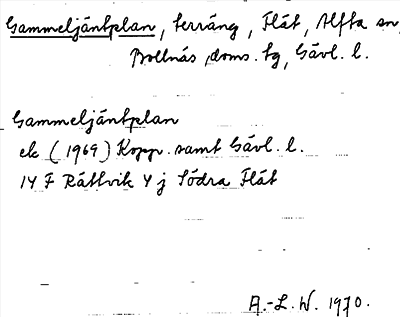 Gammeljäntplan, terräng, Flåt, Alfta sn,
Bollnäs doms. tg, Gävl. l.
Gammeljäntplan
ek (1969) Kopp. samt Gävl. l.
14 F Rättvik 4 j Södra Flåt
A.-L. W. 1970.